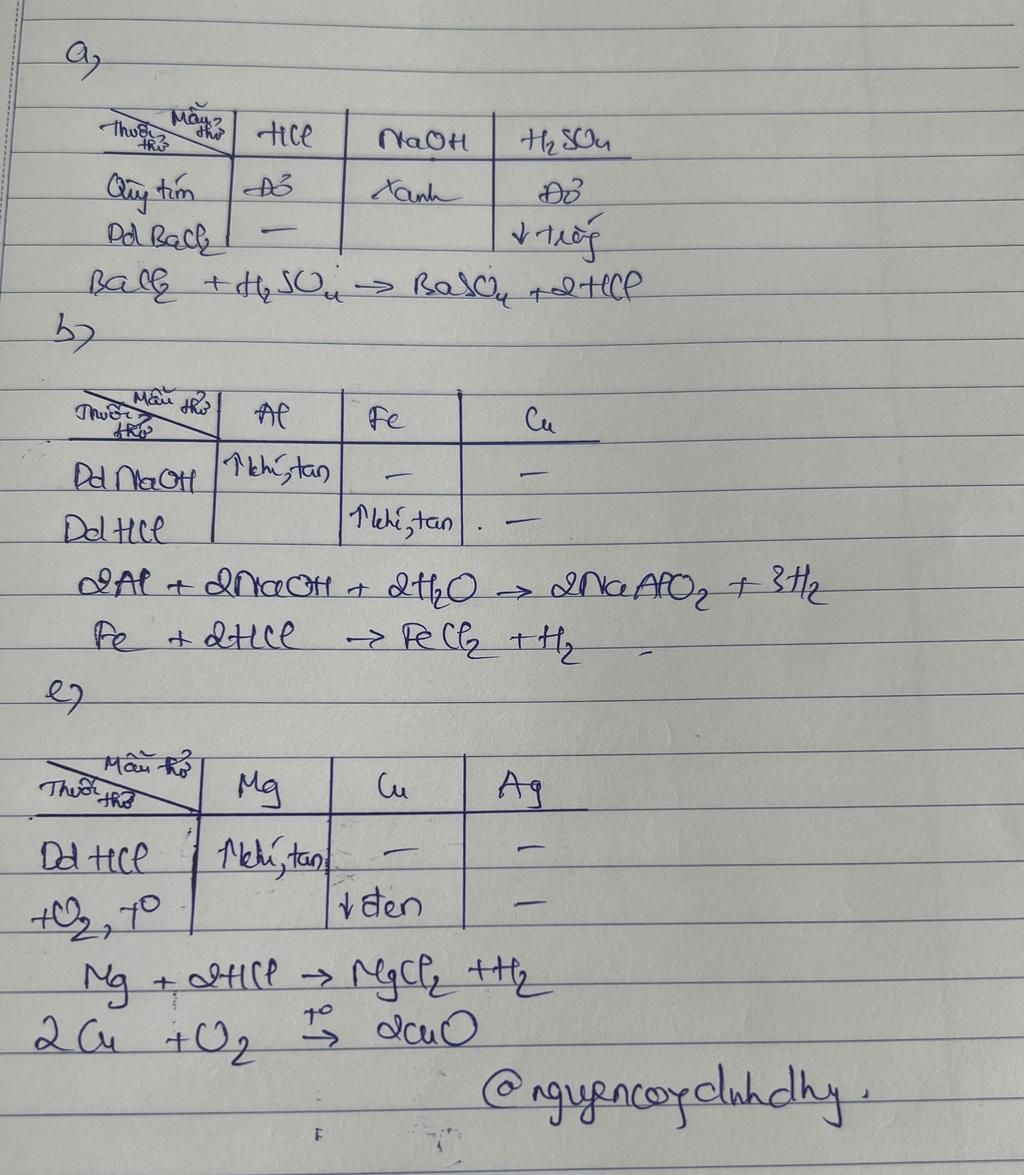 a,
Thuốc thử Mẫu thử HCl NaOH H₂SO₄
Quỳ tím Đỏ Xanh Đỏ
Dd BaCl₂ — ↓ trắng
BaCl₂ + H₂SO₄ → BaSO₄ + 2HCl
b,
Thuốc thử Mẫu thử Al Fe Cu
Dd NaOH ↑khí, tan — —
Dd HCl ↑khí, tan —
2Al + 2NaOH + 2H₂O → 2NaAlO₂ + 3H₂
Fe + 2HCl → FeCl₂ + H₂
c,
Thuốc thử Mẫu thử Mg Cu Ag
Dd HCl ↑khí, tan — —
+O₂, t° ↓ đen —
Mg + 2HCl → MgCl₂ + H₂
2Cu + O₂ t° → 2CuO